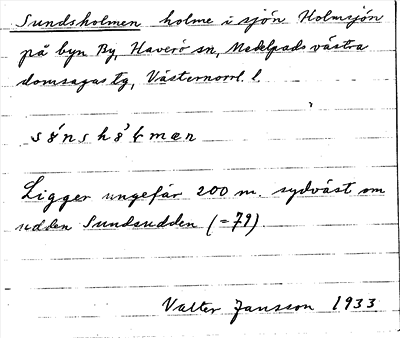 Sundsholmen holme i sjön Holmsjön
på byn By, Haverö sn, Medelpads västra
domsagas tg, Västernorrl. l.
Ligger ungefär 200 m. sydväst om
udden Sundsudden (=79)
Valter Jansson 1933